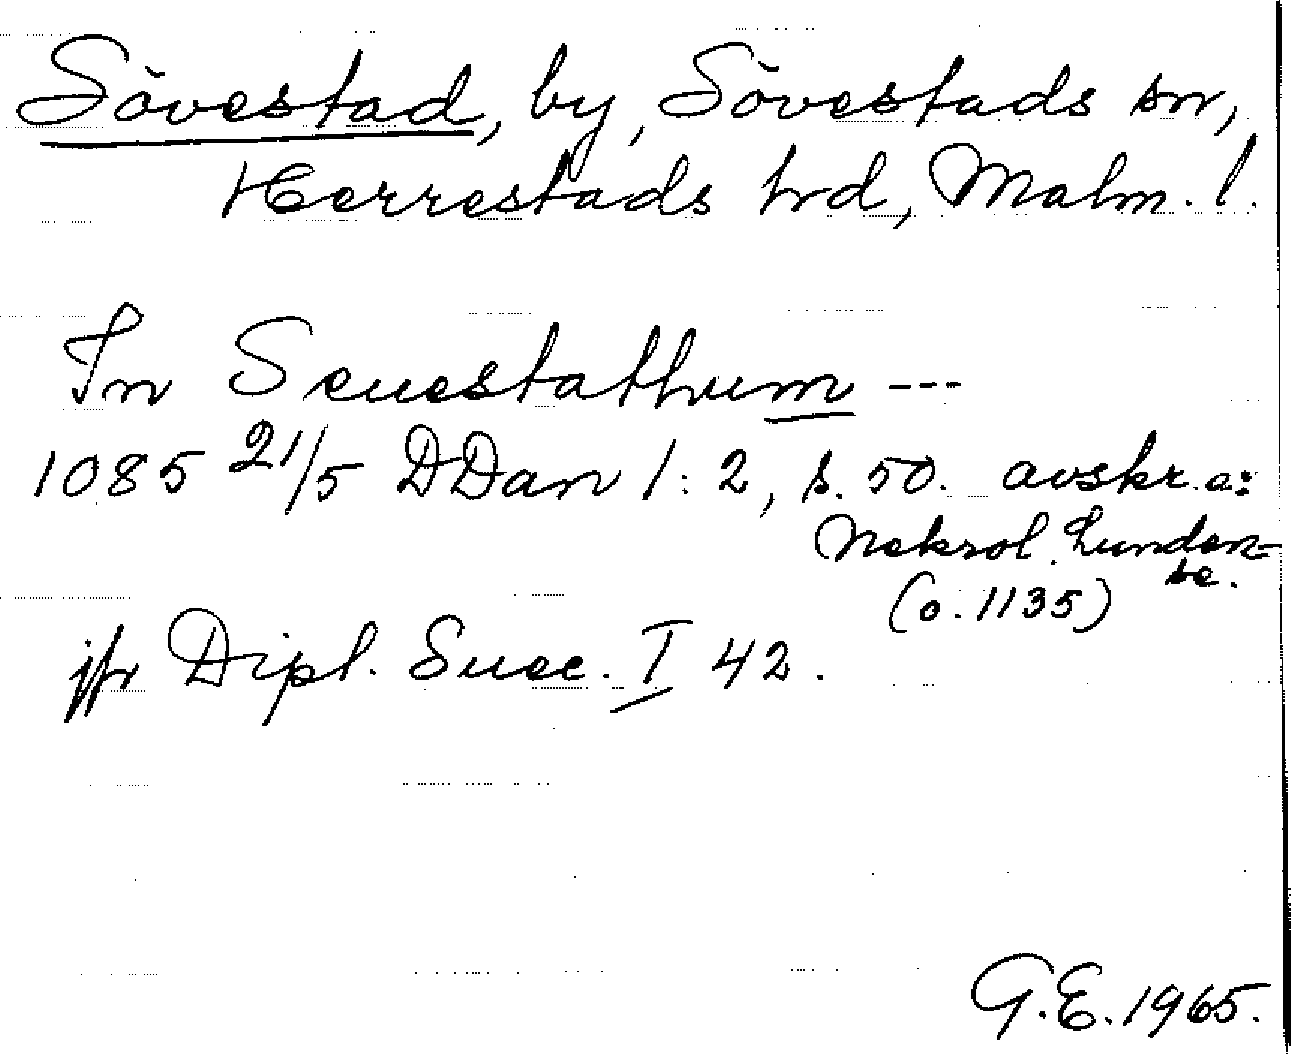 Sövestad, by, Sövestads sn,
Herrestads hrd, Malm. l.
In Seuestathum ---
1085 21/5 DDan 1:2, s. 50. avskr. a:
Nekrol. Lunden-
se.
(o. 1135)
jfr Dipl. Suec. I 42.
G.E. 1965.